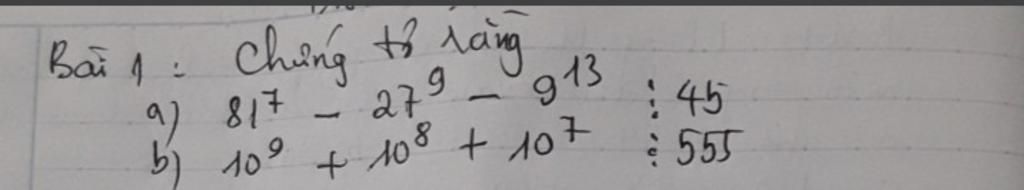 Bài 1 : Chứng tỏ rằng
a) 81⁷ - 27⁹ - 9¹³ ⋮ 45
b) 10⁹ + 10⁸ + 10⁷ ⋮ 555